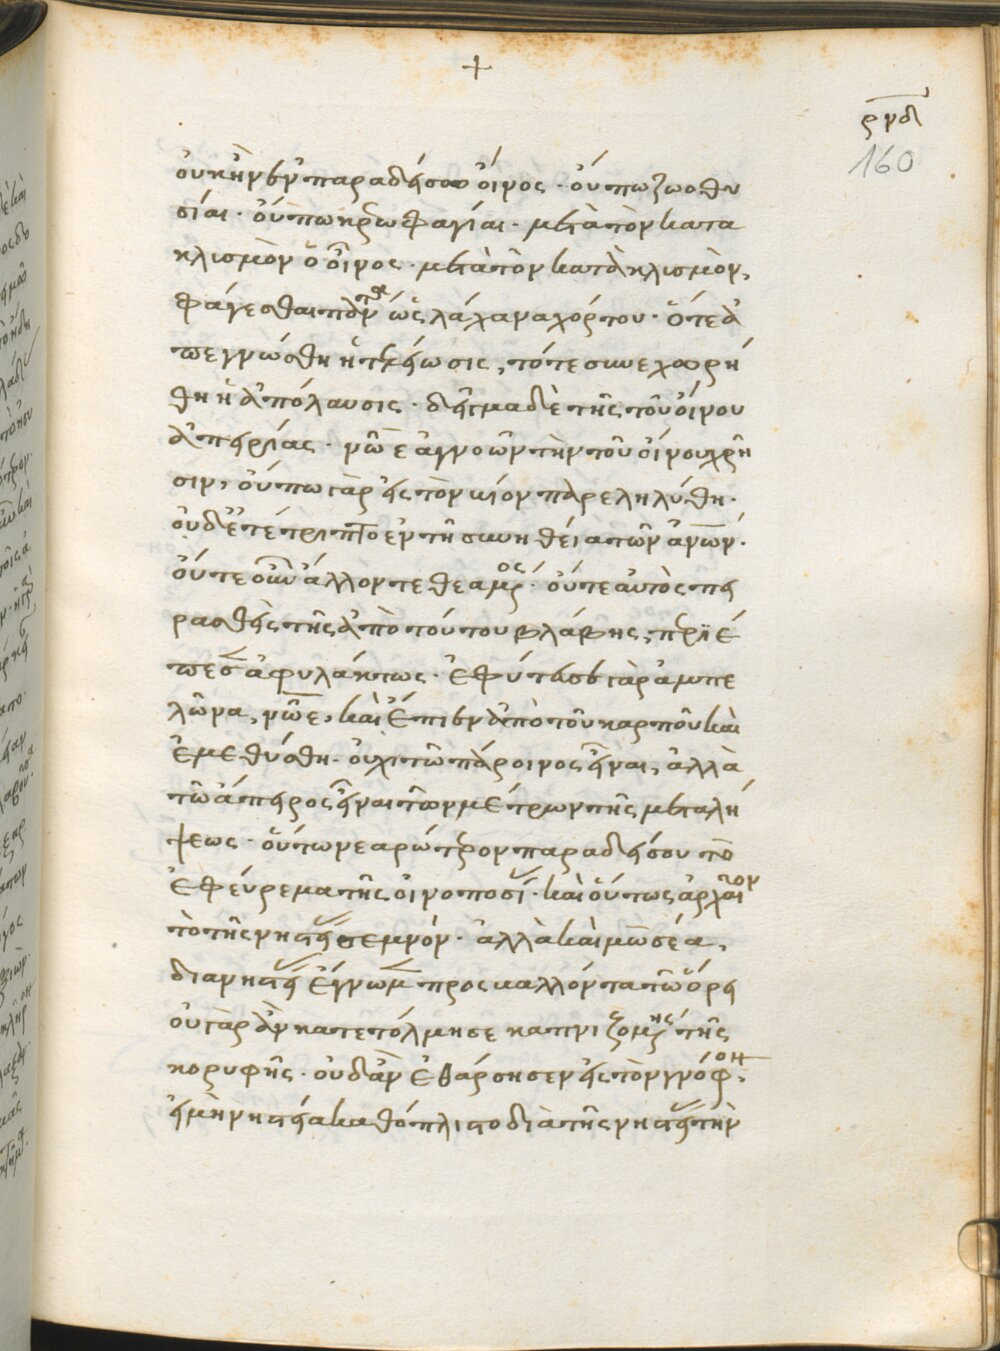 +
ρνδ
160
οὐκ ἦν ἐν παραδείσω οἶνος · οὔπω ζωοθυ
σίαι · οὔπω κρεωφαγίαι · μετὰ τὸν κατα
κλισμὸν ὁ οἶνος · μετὰ τὸν κατακλισμὸν,
φάγεσθαι πάντα ὡς λάχανα χόρτου · ὅτε ἀ
πεγνώσθη ἡ τελείωσις, τότε συνεχωρή
θη ἡ ἀπόλαυσις · δεῖγμα δὲ τῆς τοῦ οἴνου
ἀπειρίας · νῶε ἀγνοῶν τὴν τοῦ οἴνου χρῆ
σιν, οὔπω γὰρ εἰς τὸν βίον παρεληλύθη ·
οὐδὲ τέτριπτο ἐν τῆ συνηθεία τῶν ἀνων ·
οὔτε οὖν ἄλλον τεθεαμένος · οὔτε αὐτὸς πει
ραθεὶς τῆς ἀπὸ τούτου βλάβης, περιέ
πεσεν ἀφυλάκτως · ἐφύτευσε γὰρ ἀμπε
λῶνα, νῶε, καὶ ἔπιεν ἀπὸ τοῦ καρποῦ καὶ
ἐμεθύσθη · οὐχὶ τῶ πάροινος εἶναι, ἀλλὰ
τῶ ἄπειρος εἶναι τῶν μέτρων τῆς μεταλή
ψεως · οὕτω νεαρώτερον παραδείσου τὸ
ἐφεύρεμα τῆς οἰνοποσί · καὶ οὕτως ἀρχαῖον
τὸ τῆς νηστείας σεμνόν · ἀλλὰ καὶ μωσέα,
δια νηστείας ἔγνωμεν προσβαλλόντα τῶ ὄρει
οὐ γὰρ ἂν κατετόλμησε καπνιζομένης τῆς
κορυφῆς · οὐδ' ἂν ἐθάρσησεν εἰς τὸν γνόφον ·
εἰ μὴ νηστεία καθόπλιστο διὰ τῆς νηστείας τὴν